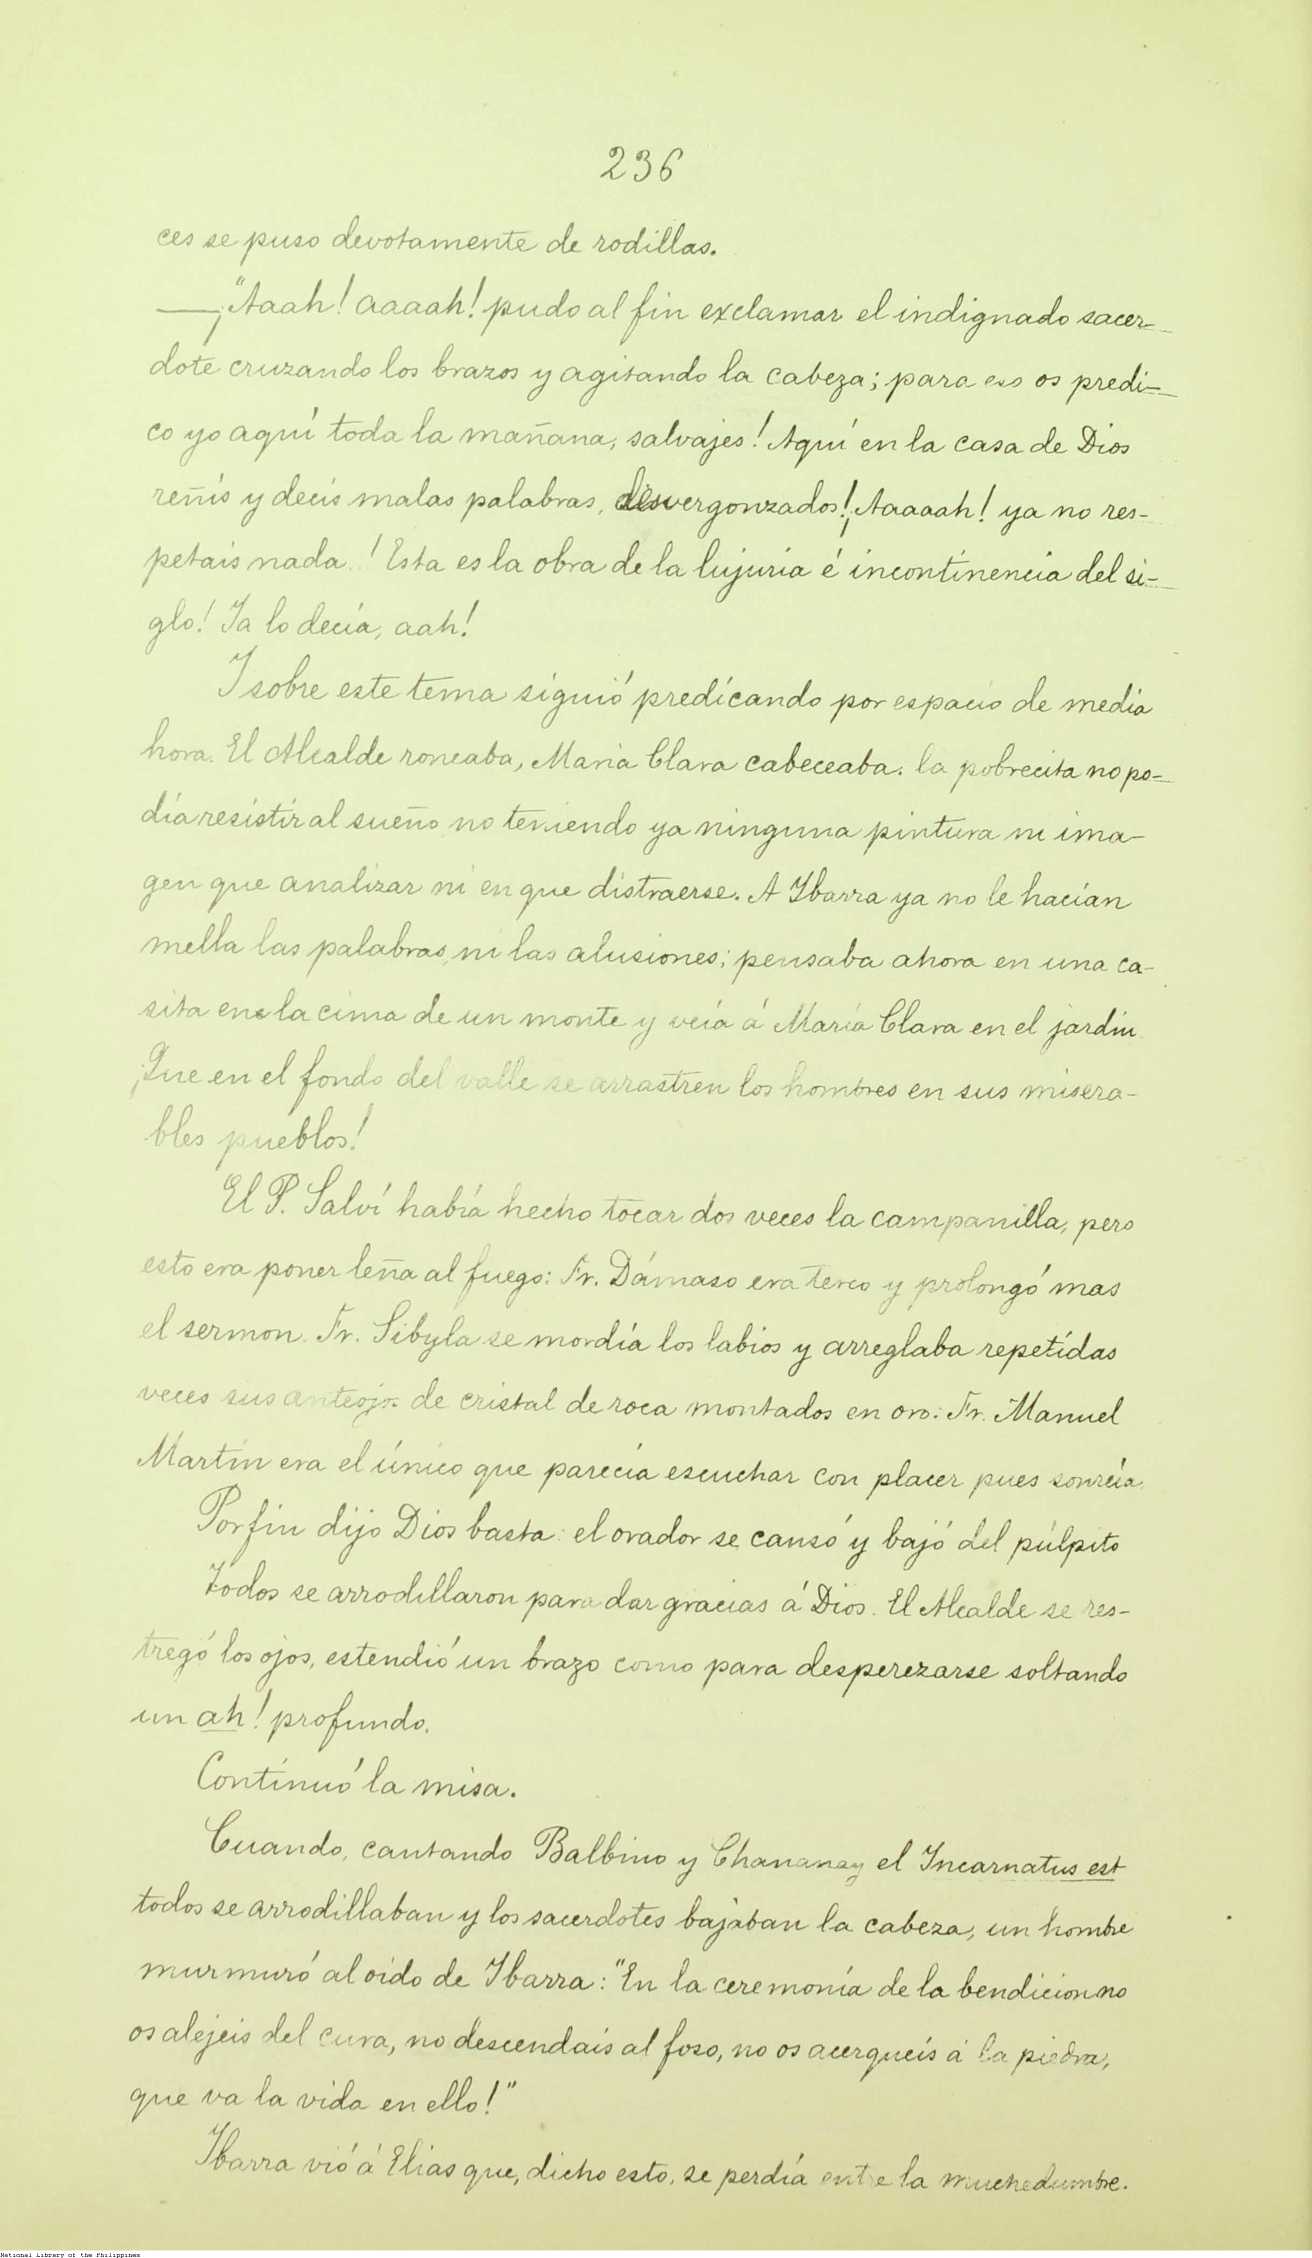 236
ces se puso devotamente de rodillas.
—¡"Aaah! aaaah! pudo al fin exclamar el indignado sacer-
dote cruzando los brazos y agitando la cabeza; para eso os predi-
co yo aquí toda la mañana, salvajes! Aquí en la casa de Dios
reñís y decís malas palabras, desvergonzados! ¡Aaaaah! ya no res-
petais nada! Esta es la obra de la lujuria é incontinencia del si-
glo! Ya lo decía, aah!
Y sobre este tema siguió predicando por espacio de media
hora. El Alcalde roncaba, María Clara cabeceaba: la pobrecita no po-
día resistir al sueño no teniendo ya ninguna pintura ni ima-
gen que analizar ni en que distraerse. A Ybarra ya no le hacían
mella las palabras, ni las alusiones; pensaba ahora en una ca-
sita en la cima de un monte y veía á María Clara en el jardin.
¡Que en el fondo del valle se arrastren los hombres en sus misera-
bles pueblos!
El P. Salví había hecho tocar dos veces la campanilla, pero
esto era poner leña al fuego: Fr. Dámaso era terco y prolongó mas
el sermon. Fr. Sibyla se mordía los labios y arreglaba repetidas
veces sus anteojos de cristal de roca montados en oro: Fr. Manuel
Martin era el único que parecía escuchar con placer pues sonreía.
Por fin dijo Dios basta: el orador se cansó y bajó del púlpito
Todos se arrodillaron para dar gracias á Dios. El Alcalde se res-
tregó los ojos, estendió un brazo como para desperezarse soltando
un ah! profundo.
Continuó la misa.
Cuando, cantando Balbino y Chananay el Incarnatus est
todos se arrodillaban y los sacerdotes bajaban la cabeza, un hombre
murmuró al oido de Ybarra: "En la ceremonía de la bendicion no
os alejeis del cura, no descendais al foso, no os acerqueís á la piedra,
que va la vida en ello!"
Ybarra vió á Elias que, dicho esto, se perdía entre la muchedumbre.
National Library of the Philippines